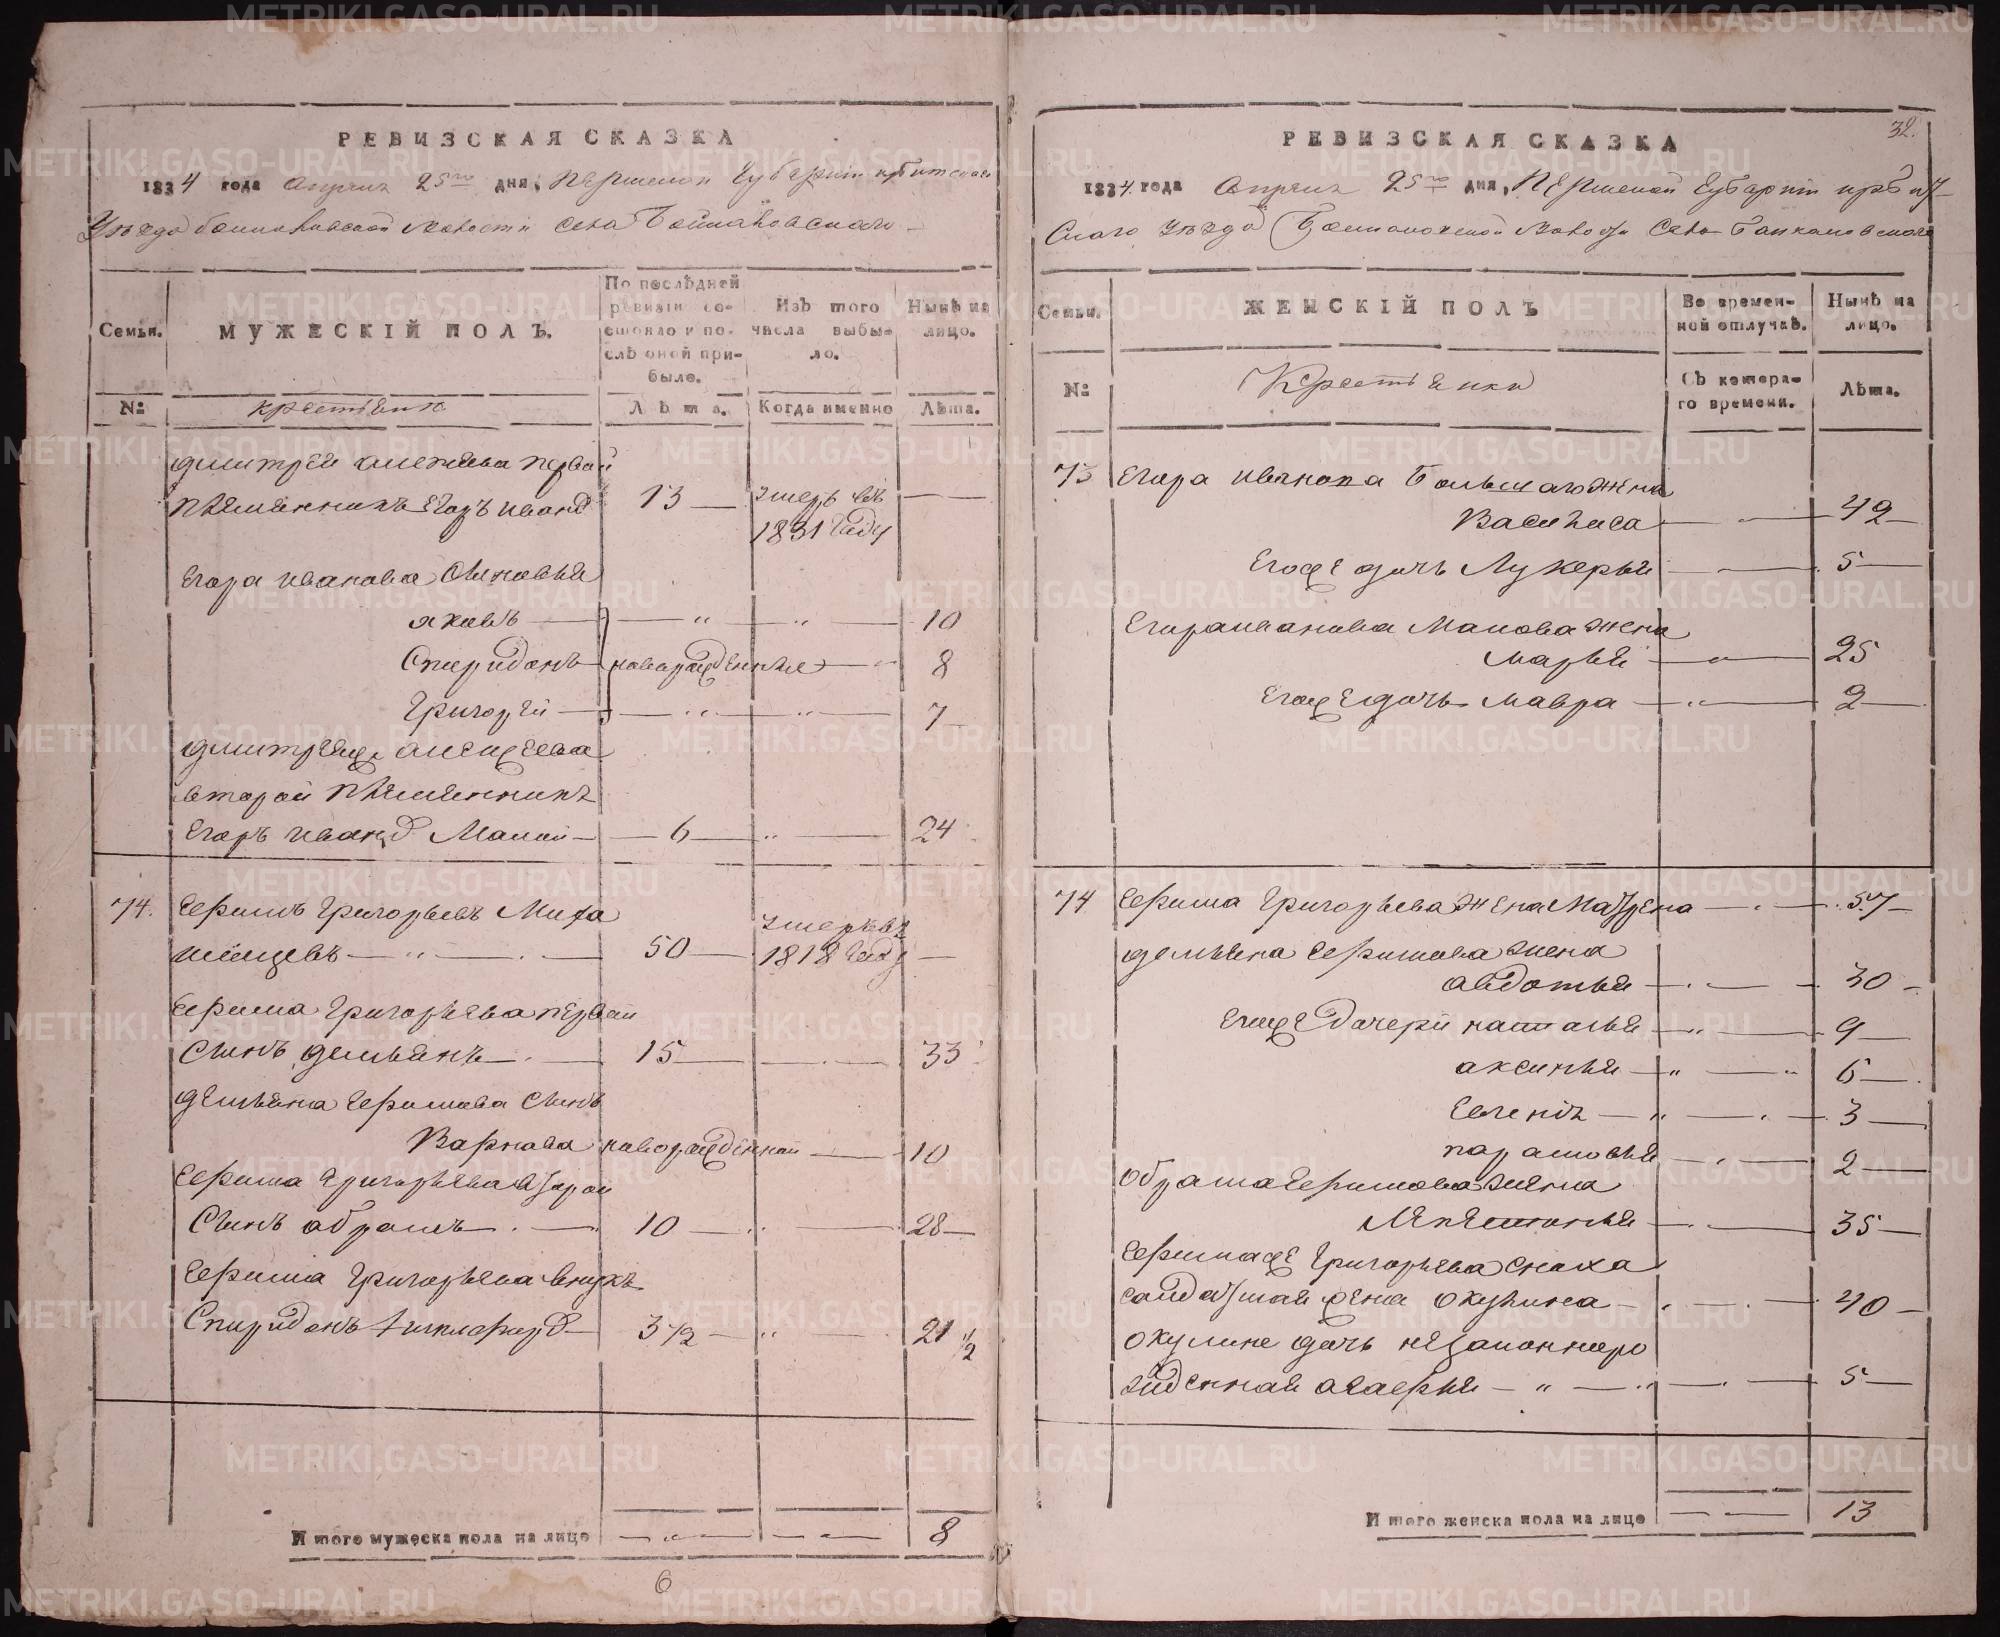 РЕВИЗСКАЯ СКАЗКА
1834 года апреля 25го дня, Пермской Губернiи ирбитскаго
Уѣзда волости села
Семьи.
МУЖЕСКІЙ ПОЛЪ.
По послѣдней ревизіи состояло и послѣ оной прибыло.
Изъ того числа выбыло.
Нынѣ на лицо.
№: крестьяня Лѣта. Когда именно Лѣта.
дмитрей алексѣева первой
племянникъ Егоръ иванов 13 — умеръ въ — —
1831 году
Егора иванова Сыновья
яковъ — — „ — „ — 10
Спиридонъ новорожденные — „ 8
Григорей — — „ — „ — 7
второй племянникъ
Егоръ иванов Малой — — 6 — „ — 24
74. Ефимъ Григорьевъ
50 — умеръ въ 1818 году —
Ефима Григорьева первой
Сынъ демьянъ — 15 — — 33
демьяна Ефимова Сынъ
Варнава новорожденной — 10
Ефима Григорьева второй
Сынъ абрамъ — 10 — „ — 28 —
Ефима Григорьева внукъ
Спиридонъ — 3 1/2 — „ — 21 1/2
Итого мужеска пола на лицо — „ — — „ — 8
6
32.
РЕВИЗСКАЯ СКАЗКА
1834. года Апреля 25го дня, Пермской Губернiи ирбит
Скаго уѣзда волости Села
Семьи.
ЖЕНСКІЙ ПОЛЪ
Во временной отлучкѣ.
Нынѣ на лицо.
№: Крестьянки Съ котораго времени. Лѣта.
73 Егора иванова Большаго жена
Василиса — — 42 —
Егоже дочь Лукерья — — 5 —
Егора иванова Малова жена
Марья — „ — 25
Егоже дочь Мавра — „ — 2 —
74 Ефима Григорьева жена Матрена — 57 —
демьяна Ефимова жена
авдотья — — 30 —
Егоже дочери наталья — „ — 9 —
аксинья — „ — „ 6 — .
— „ — 3 —
парасковья — 2 —
абрама Ефимова жена
— — 35 —
Ефимаже Григорьева сноха
салдатская жена окулина — 40 —
окулине дочь незаконноро
жденная — „ — „ — 5 —
Итого женска пола на лицо — — 13
METRIKI.GASO-URAL.RU